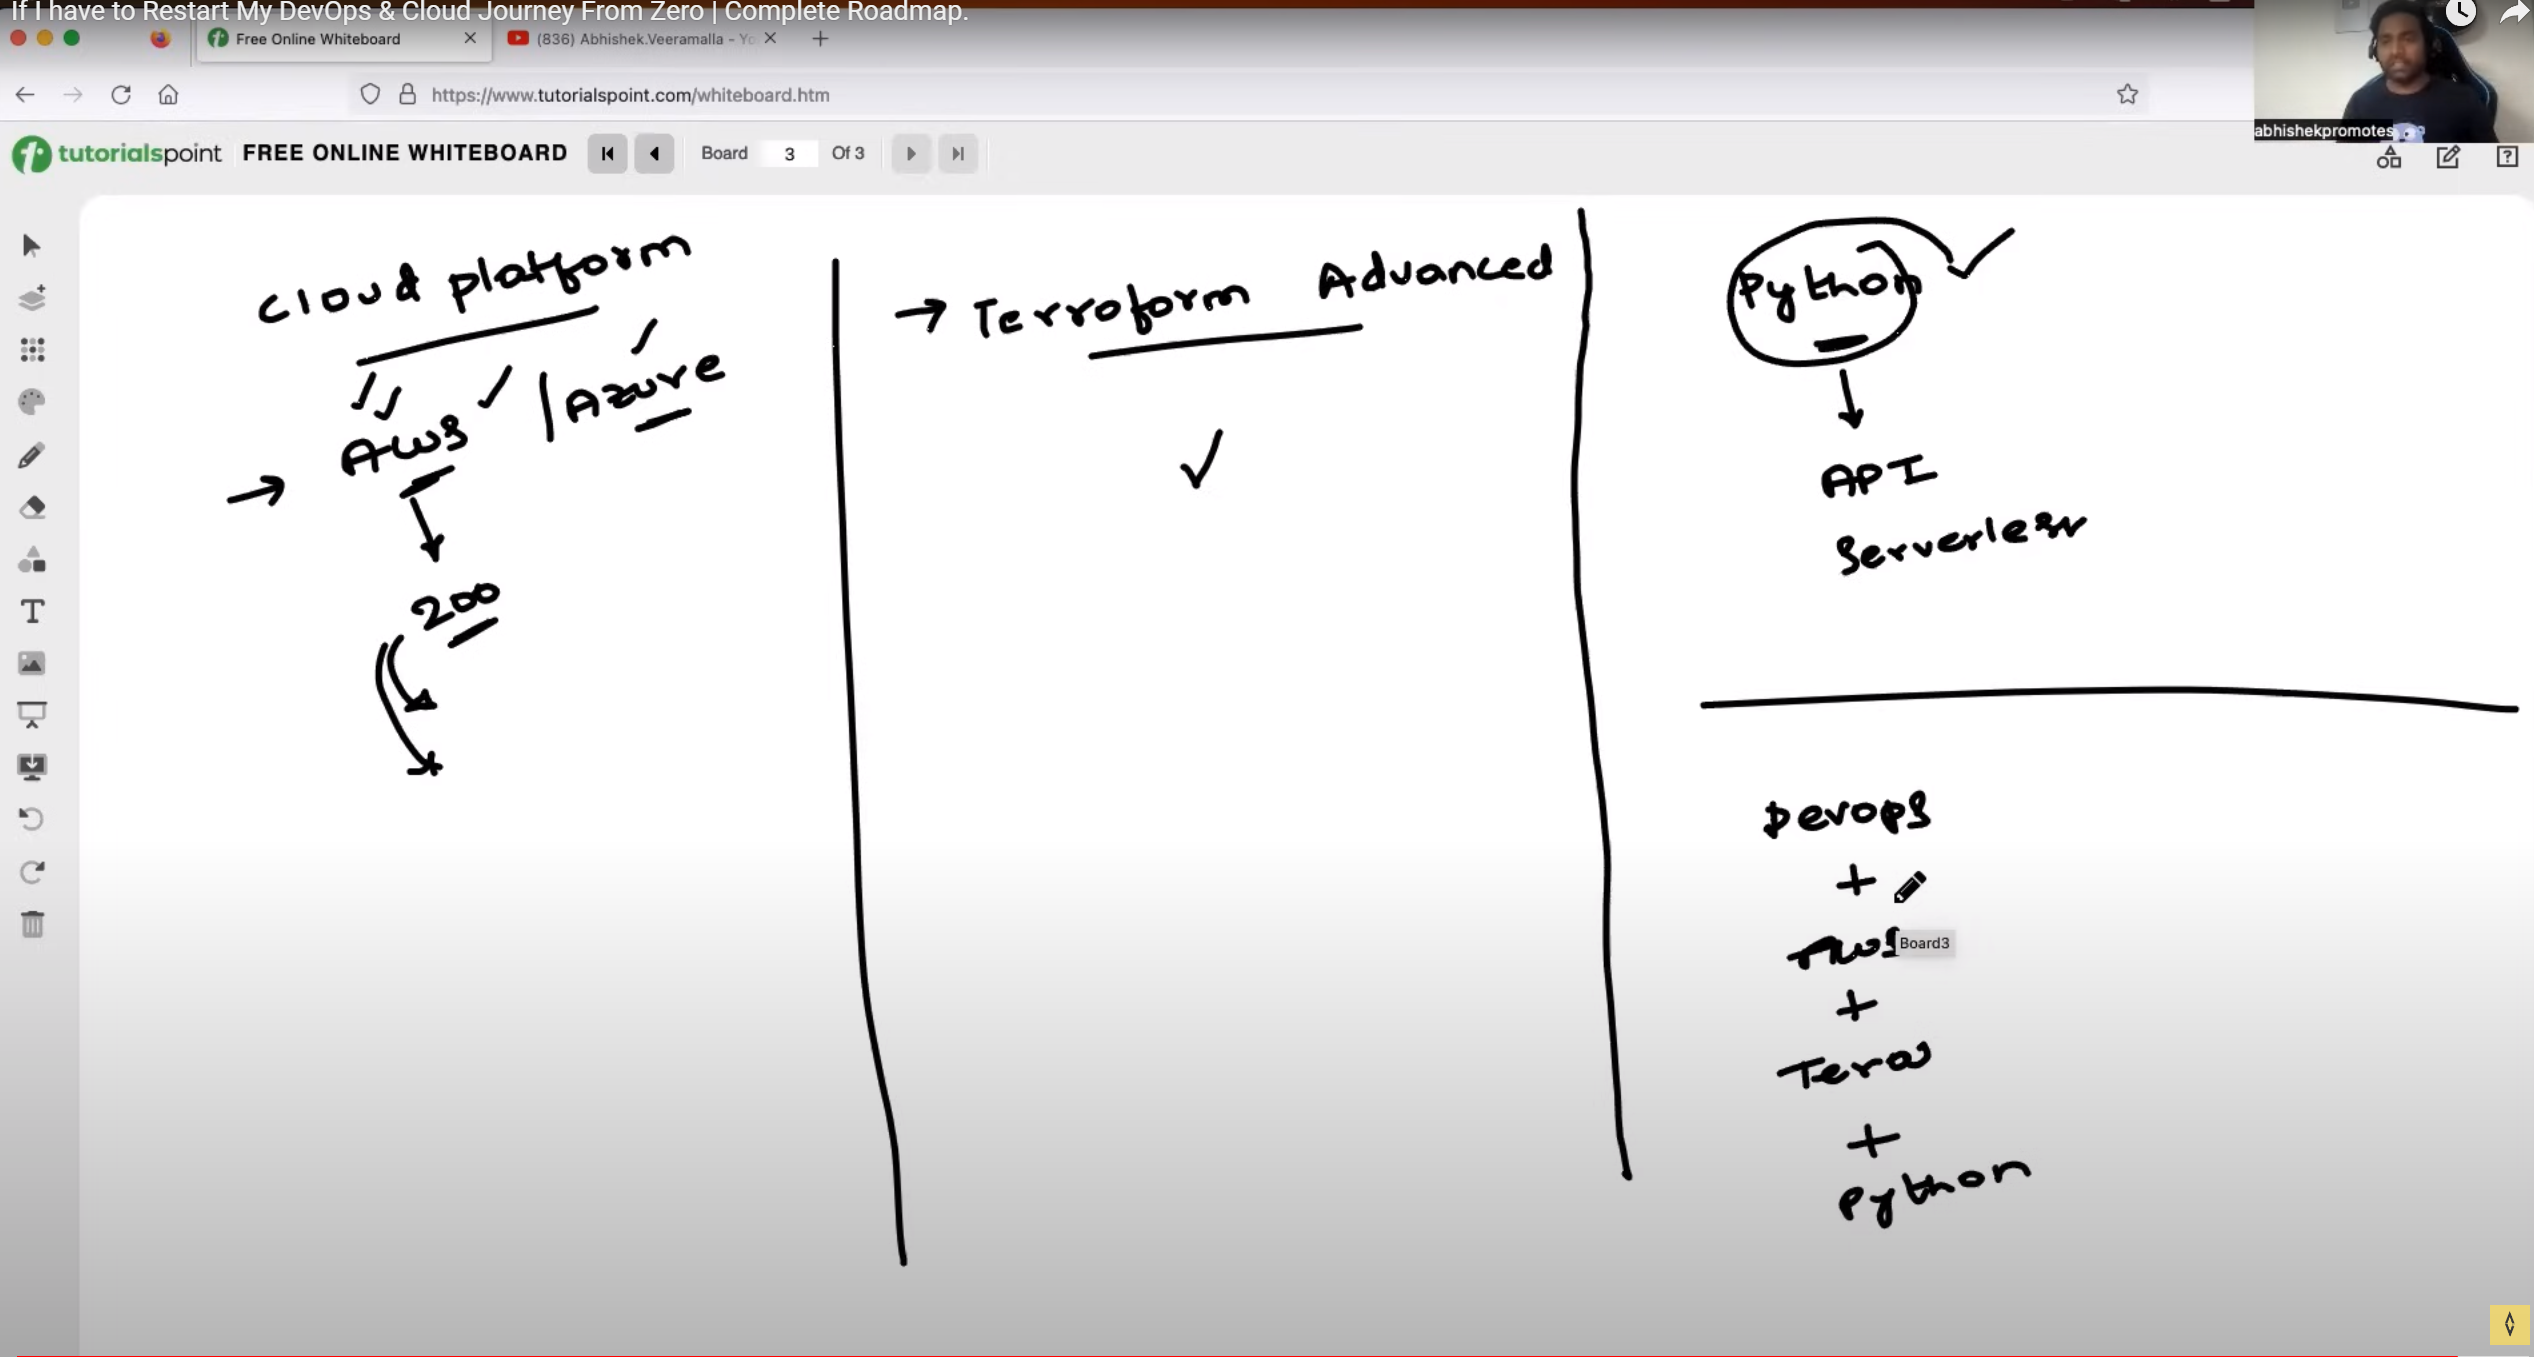 If I have to Restart My DevOps & Cloud Journey From Zero | Complete Roadmap.
Free Online Whiteboard
(836) Abhishek.Veeramalla - Yo
https://www.tutorialspoint.com/whiteboard.htm
abhishekpromotes
tutorialspoint FREE ONLINE WHITEBOARD Board 3 Of 3
Cloud platform
AWS | Azure
200
→ Terroform Advanced
Python
API
Serverless
Devops
+
AWS
Board3
+
Tera
+
Python